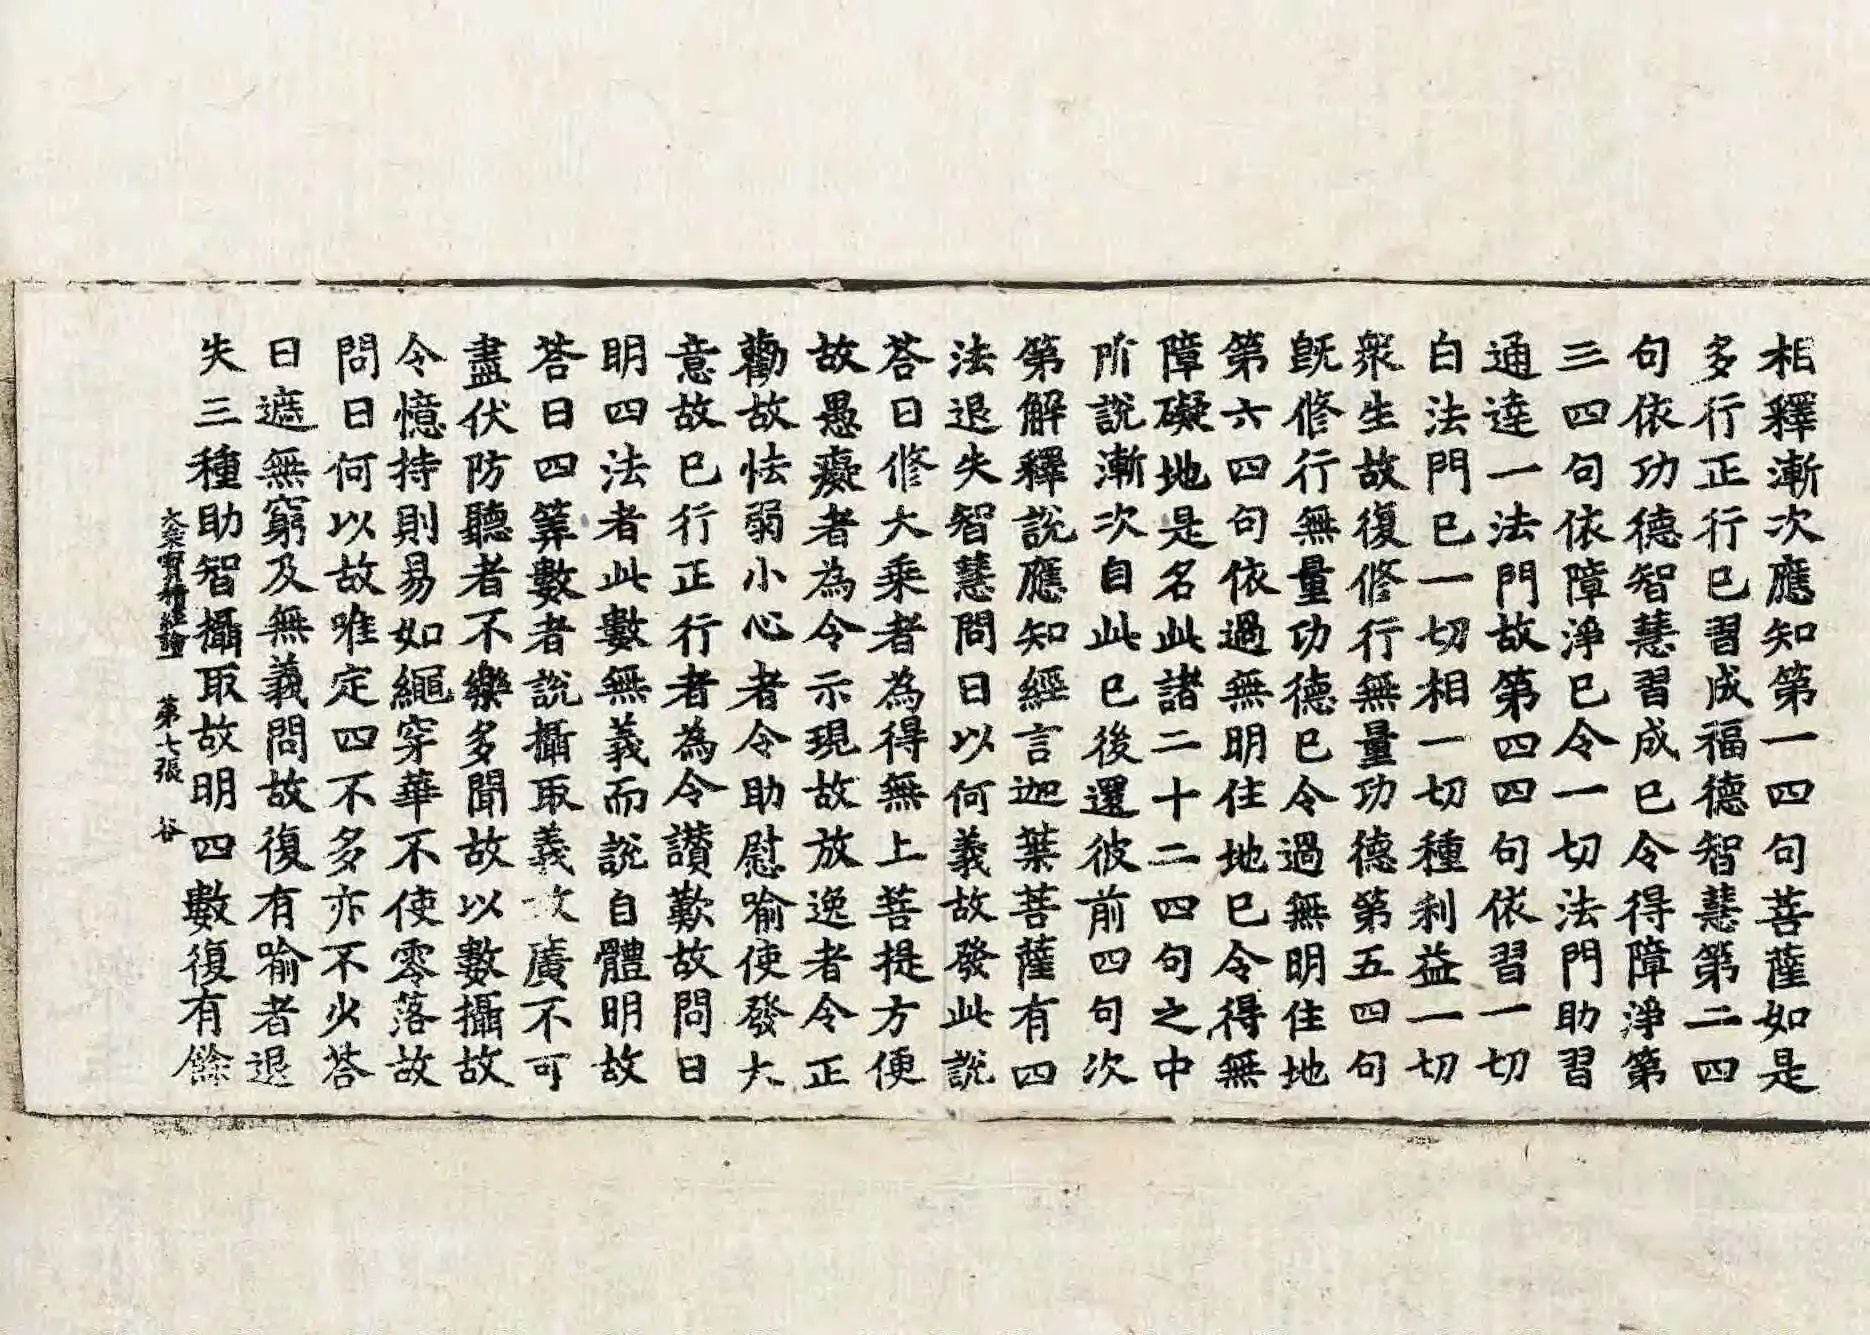 相釋漸次應知第一四句菩薩如是
多行正行已習成福德智慧第二四
句依功德智慧習成已令得障淨第
三四句依障淨已令一切法門助習
通達一法門故第四四句依習一切
白法門已一切相一切種利益一切
衆生故復修行無量功德第五四句
旣修行無量功德已令過無明住地
第六四句依過無明住地已令得無
障礙地是名此諸二十二四句之中
所說漸次自此已後還彼前四句次
第解釋說應知經言迦葉菩薩有四
法退失智慧問曰以何義故發此說
荅曰修大乘者為得無上菩提方便
故愚癡者為令示現故放逸者令正
勸故怯弱小心者令助慰喻使發大
意故已行正行者為令讃歎故問曰
明四法者此數無義而說自體明故
荅曰四筭數者說攝取義故廣不可
盡伏防聽者不樂多聞故以數攝故
令憶持則易如繩穿華不使零落故
問曰何以故唯定四不多亦不少荅
曰遮無窮及無義問故復有喻者退
失三種助智攝取故明四數復有餘
大寶積經論 第七張 谷